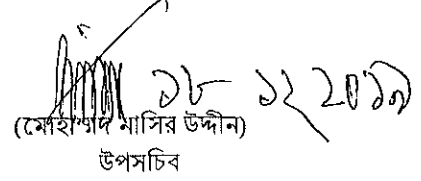 ১৮ ১২ ২০১৯
(মোহাম্মদ নাসির উদ্দীন)
উপসচিব